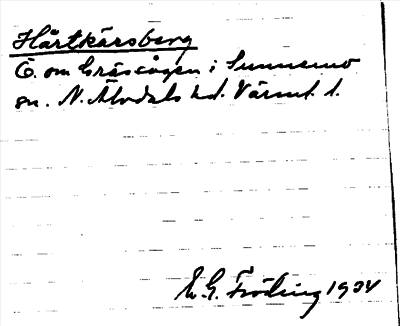 Hårtkärsberg
Ö. om Gräscågen i Sunnemo
sn. N. Älvdals hd. Värml. l.
E. G. Fröding 1934